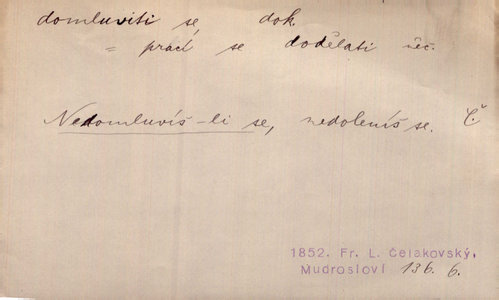 domluviti se dok.
= prací se dodělati něc.
Nedomluvíš-li se, nedoleníš se. Č.
1852. Fr. L. Čelakovský,
Mudrosloví 136. 6.